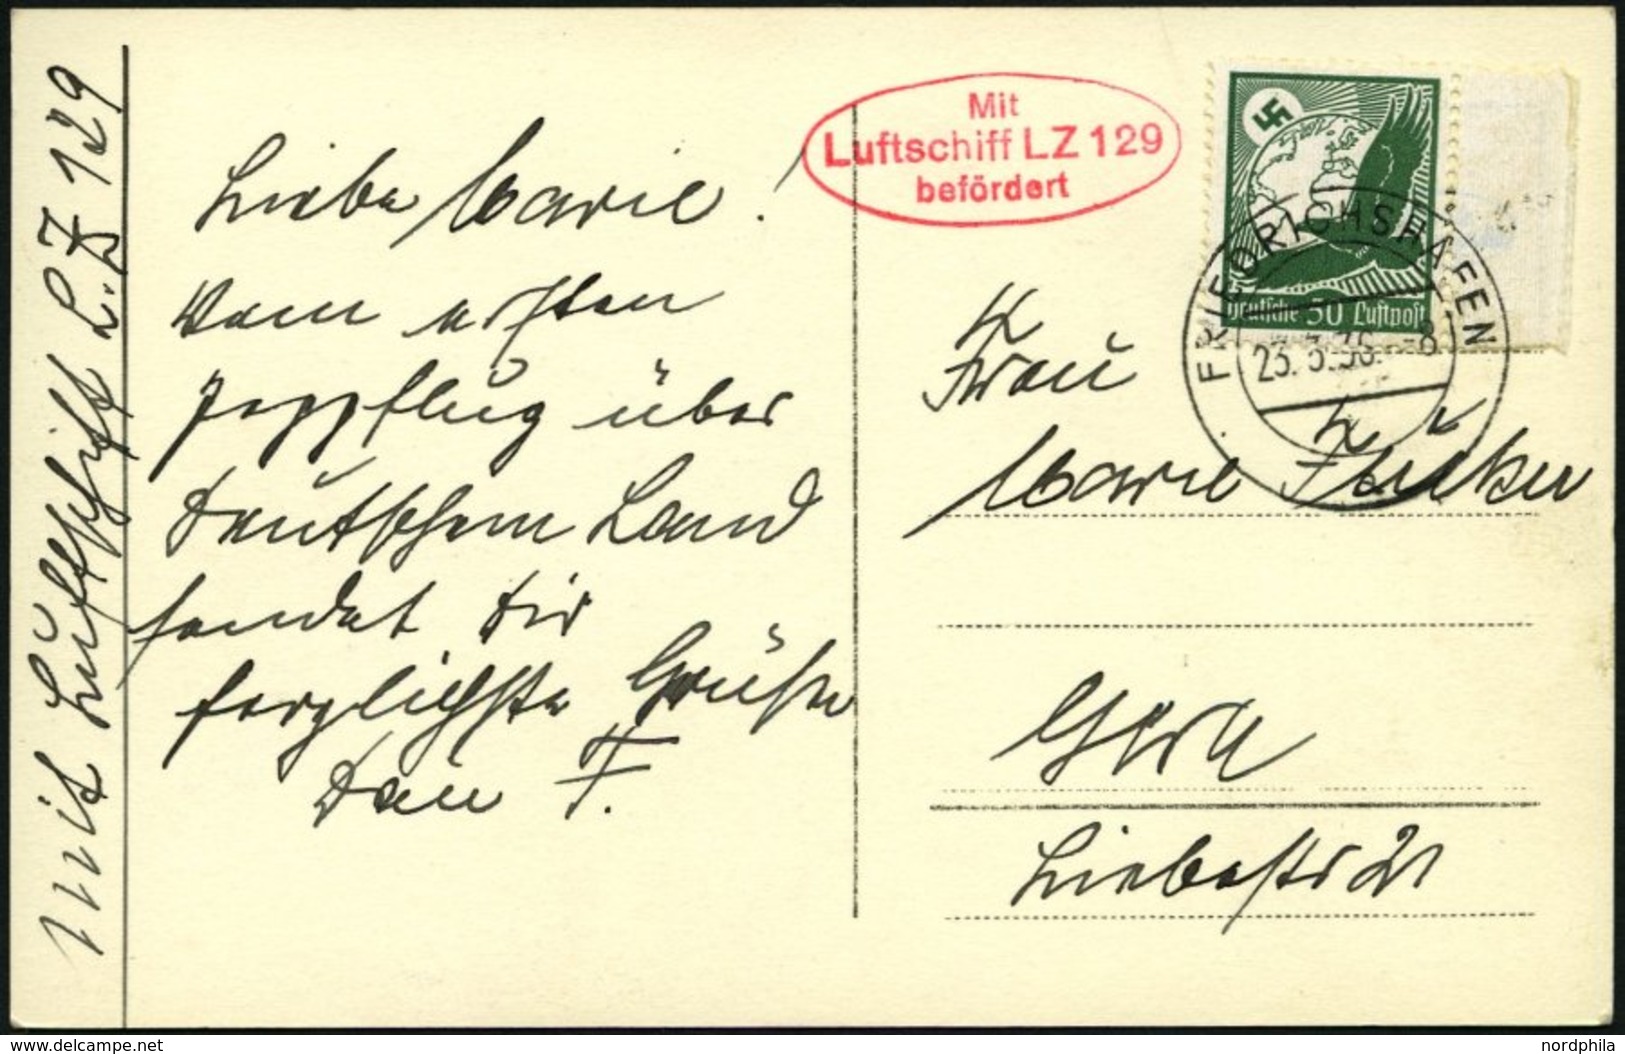 Mit Luftschiff L.Z 129
Liebe Marie!
Vom ersten
Postflug über
Deutschem Land
sendet Dir
herzlichste Grüße
Dein F.
Mit
Luftschiff LZ 129
befördert
Deutsche 50 Luftpost
FRIEDRICHSHAFEN
23. 3. 36. -8
Frau
Marie
Gera
www.delcampe.net
nordphila